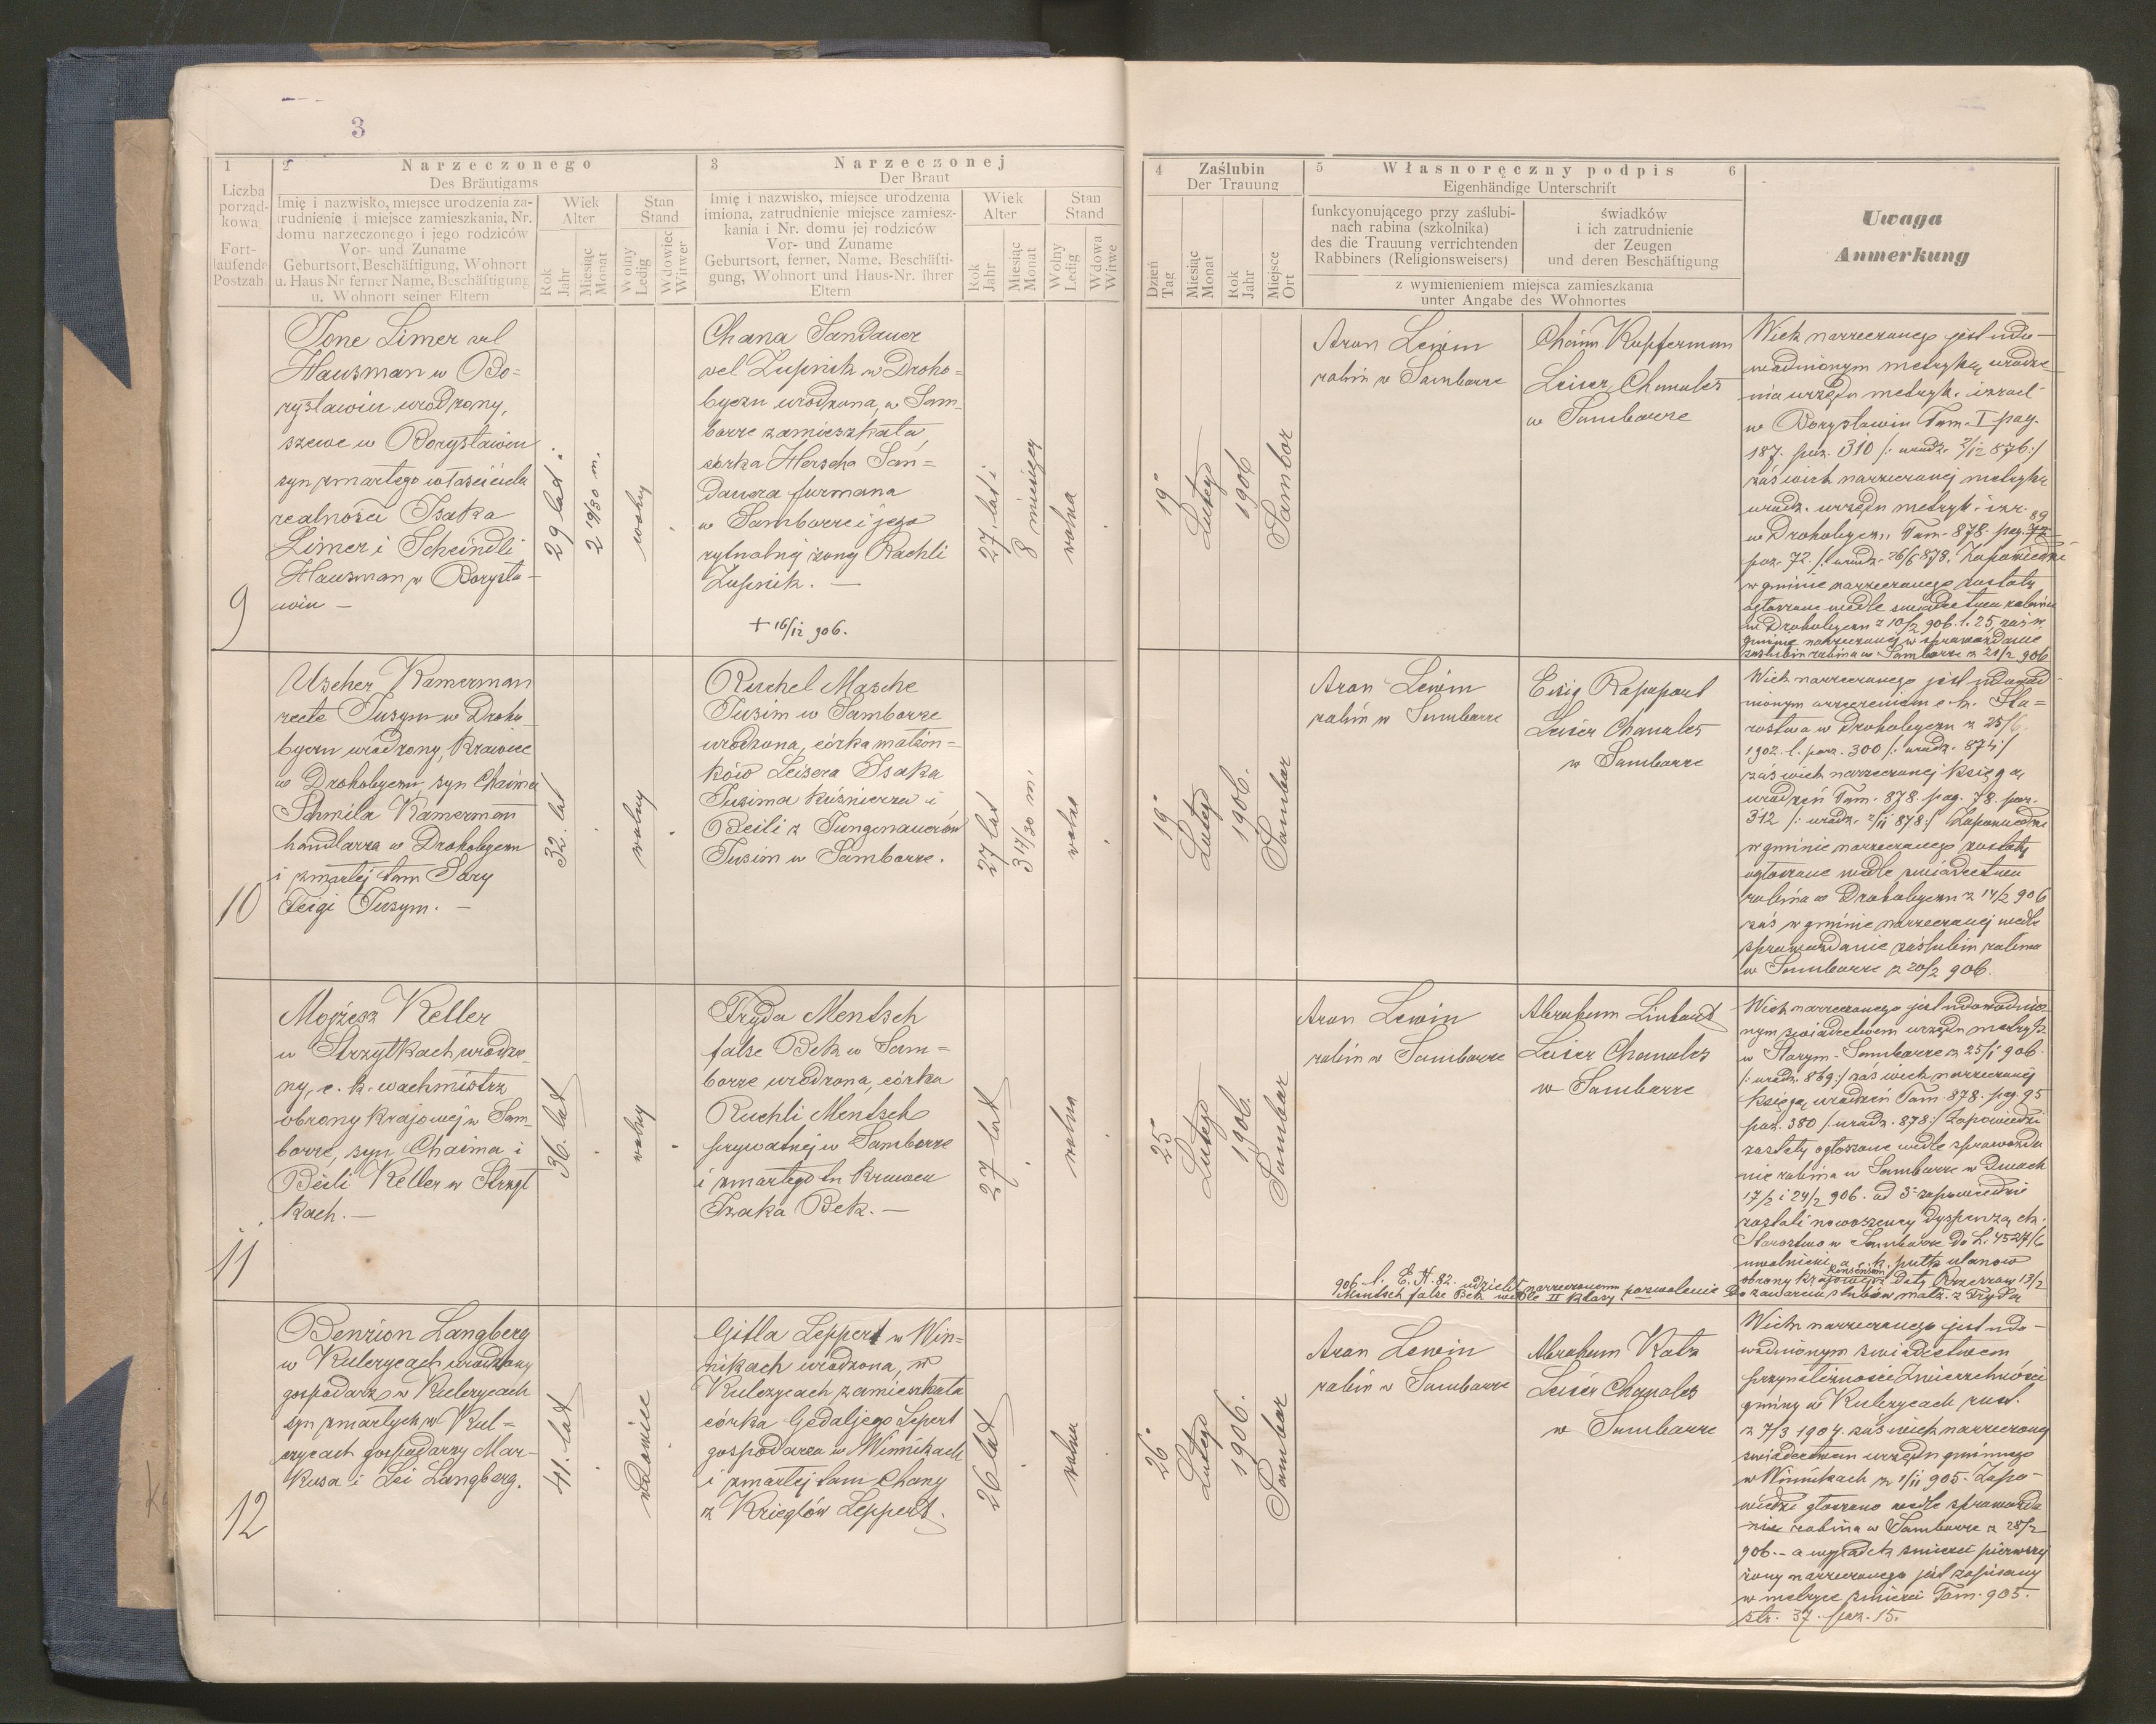 3
1
Liczba
porząd-
kowa
Fort-
laufende
Postzah.
2
Narzeczonego
Des Bräutigams
Imię i nazwisko, miejsce urodzenia za-
trudnienie i miejsce zamieszkania, Nr.
domu narzeczonego i jego rodziców
Vor- und Zuname
Geburtsort, Beschäftigung, Wohnort
u. Haus Nr ferner Name, Beschäftigung
u. Wohnort seiner Eltern
Wiek
Alter
Rok
Jahr
Miesiąc
Monat
Stan
Stand
Wolny
Ledig
Wdowiec
Witwer
3
Narzeczonej
Der Braut
Imię i nazwisko, miejsce urodzenia
imiona, zatrudnienie miejsce zamiesz-
kania i Nr. domu jej rodziców
Vor- und Zuname
Geburtsort, ferner, Name, Beschäfti-
gung, Wohnort und Haus-Nr. ihrer
Eltern
Wiek
Alter
Rok
Jahr
Miesiąc
Monat
Stan
Stand
Wolny
Ledig
Wdowa
Witwe
4
Zaślubin
Der Trauung
Dzień
Tag
Miesiąc
Monat
Rok
Jahr
Miejsce
Ort
5
Własnoręczny podpis
6
Eigenhändige Unterschrift
funkcyonującego przy zaślubi-
nach rabina (szkolnika)
des die Trauung verrichtenden
Rabbiners (Religionsweisers)
świadków
i ich zatrudnienie
der Zeugen
und deren Beschäftigung
z wymienieniem miejsca zamieszkania
unter Angabe des Wohnortes
Uwaga
Anmerkung
9
Tone Limer vel
Hausman w Bo=
rysławiu urodzony,
szewc w Borysławiu
syn zmarłego właściciela
realności Isaka
Limer i Scheindli
Hausman w Borysła-
wiu —
29 lat i
2 19/30 m.
wolny
Chana Sandauer
vel Zupnik w Droho=
byczu urodzona, w Sam-
borze zamieszkała,
córka Herscha San=
dauera furmana
w Samborze i jego
rytualnej żony Rachli
Zupnik. —
+ 16/12 906.
27 lat i
8 miesięcy
wolna
19
Lutego
1906
Sambor
Aron Lewin
rabin w Samborze
Chaim Kupferman
Leiser Chanales
w Samborze
Wiek narzeczonego jest udo-
wodnionym metryką urodze
nia urzędu metryk. izrael-
w Borysławiu Tom. I pag.
187. poz. 310 /: urodz. 2/12 876:/
zaś wiek narzeczonej metryką
urodz. urzędu metryk. izr.
w Drohobyczu Tom. 878. pag. 89
poz. 72. /: urodz. 26/6 878. Zapowiedzi
w gminie narzeczonego zostały
ogłoszone wedle świadectwa rabina
w Drohobyczu z 10/2 906. l. 25 zaś w
gminie narzeczonej w sprawozdanie
zaślubin rabina w Samborze z 21/2 906
10
Uscher Kamerman
recte Tusym w Droho-
byczu urodzony, krawiec
w Drohobyczu, syn Chaima
Schmila Kamerman
handlarza w Drohobyczu
i zmarłej tam Sary
Feigi Tusym. —
32. lat
wolny
Ruchel Masche
Tusim w Samborze
urodzona, córka małżon=
ków Leisera Isaka
Tusima kuśnierza i
Beili z Jungenauerów
Tusim w Samborze.
27 lat
3 17/30 m.
wolna
19
Lutego
1906.
Sambor
Aron Lewin
rabin w Samborze
Eisig Rapaport
Leiser Chanales
w Samborze
Wiek narzeczonego jest udowod-
nionym orzeczeniem c. k. Sta=
rostwa w Drohobyczu z 25/6
1902. l. porz. 300 /: urodz. 874:/
zaś wiek narzeczonej księgą
urodzeń Tom. 878. pag. 78. poz.
312 /: urodz. 2/11 878:/ Zapowiedzi
w gminie narzeczonego zostały
ogłoszone wedle świadectwa
rabina w Drohobyczu z 14/2 906
zaś w gminie narzeczonej wedle
sprawozdanie zaślubin rabina
w Samborze z 20/2 906.
11
Mojżesz Keller
w Strzyłkach urodzo-
ny, c. k. wachmistrz
obrony krajowej w Sam-
borze, syn Chaima i
Beili Keller w Strzył
kach. —
36. lat
wolny
Fryda Mentsch
false Bek w Sam=
borze urodzona, córka
Ruchli Mentsch
prywatnej w Samborze
i zmarłego tu krawca
Izaka Bek. —
27 lat
wolna
25
Lutego
1906.
Sambor
Aron Lewin
rabin w Samborze
Abraham
Leiser Chanales
w Samborze
Wiek narzeczonego jest udowodnio-
nym świadectwem urzędu metryk
w Starym-Samborze z 25/1 906.
/: urodz. 869:/ zaś wiek narzeczonej
księgą urodzeń Tom. 878. pag. 95
poz. 380 /: urodz. 878:/ Zapowiedzi
zostały ogłoszone wedle sprawozda
nie rabina w Samborze w dniach
17/2 i 24/2 906. od 3ej zapowiedzi
zostali nowożeńcy dyspenzą ck.
Starostwo w Samborze do L. 4527/6
uwolnieni, a k. pułk ułanów
obrony krajowej konsensem daty Rzeszów 13/2
906 l. E. N. 82. udzielił narzeczonemu pozwolenie do zawarcia ślubów małż. z Frydą
Mentsch false Bek wedle II klasy
12
Benzion Langberg
w Kulczycach urodzony
gospodarz w Kulczycach
syn zmarłych w Kul=
czycach gospodarzy Mar-
kusa i Lei Langberg.
41. lat
wdowiec
Gitla Leppert w Win=
nikach urodzona, w
Kulczycach zamieszkała
córka Gedaljego Lepert
gospodarza w Winnikach
i zmarłej tam Chany
z Krieglów Leppert.
26 lat
wolna
26
Lutego
1906.
Sambor
Aron Lewin
rabin w Samborze
Abraham Katz
Leiser Chanales
w Samborze
Wiek narzeczonego jest udo-
wodnionym świadectwem
przynależności Zwierzchności
gminy w Kulczycach rust.
z 7/3 1904. zaś wiek narzeczonej
świadectwem urzędu gminnego
w Winnikach z 1/11 905. Zapo-
wiedzi głoszono wedle sprawozda
nie rabina w Samborze z 28/2
906. — a wypadek śmierci pierwszej
żony narzeczonego jest zapisany
w metryce śmierci Tom. 905.
str. 37. poz. 15.